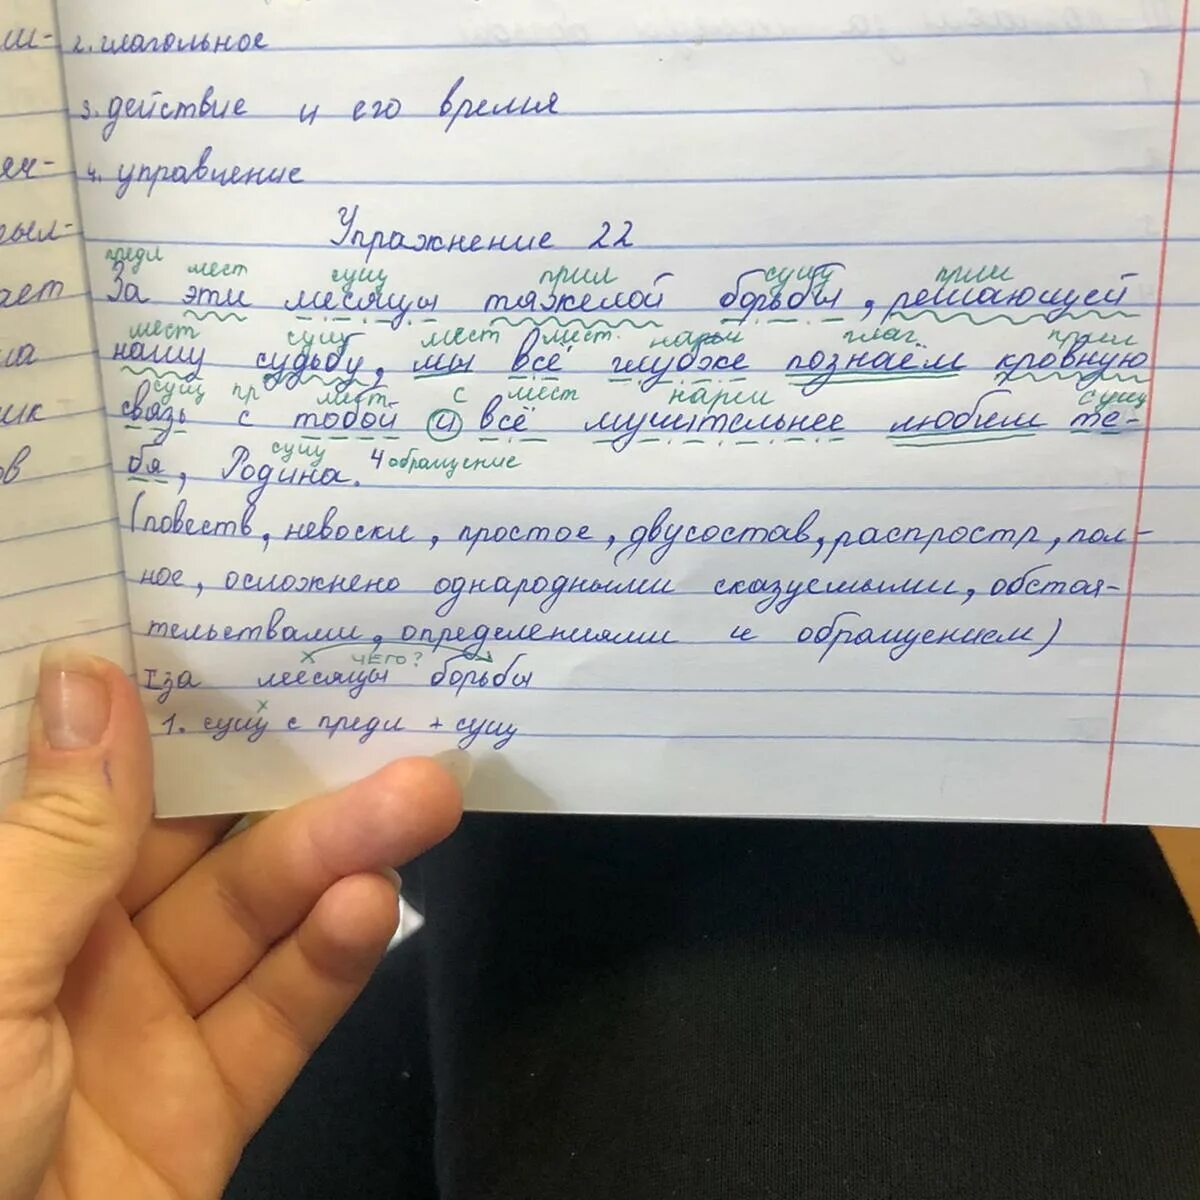 ш- 2. глагольное
3. действие и его время
4. управление
Упражнение 22
предл мест сущ прил сущ прил
За эти месяцы тяжелой борьбы, решающей
мест сущ мест мест. нареч глаг. прил
нашу судьбу, мы всё глубже познаём кровную
сущ пр мест с мест нареч сущ
связь с тобой и всё мучительнее любим те-
сущ обращение
бя, Родина.
(повеств, невоскл, простое, двусостав, распростр, пол-
ное, осложнено однородными сказуемыми, обстоя-
тельствами, определениями и обращением)
х чего?
I за месяцы борьбы
х
1. сущ с предл + сущ